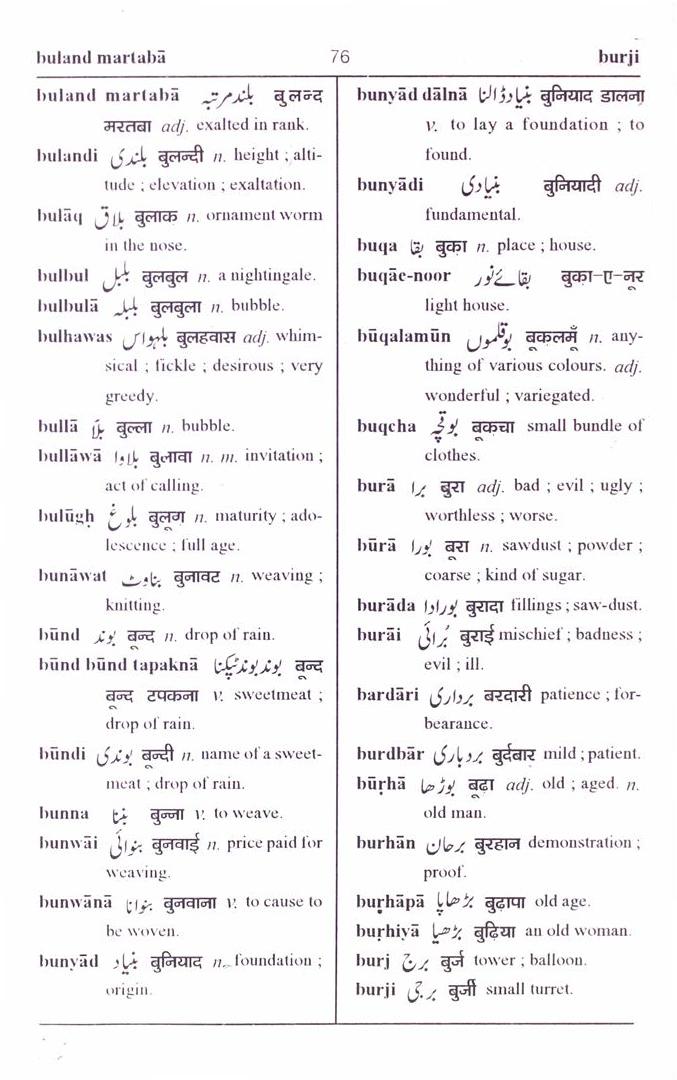 buland martabā 76 burji
buland martabā بلند مرتبہ बुलन्द
मरतबा adj. exalted in rank.
bulandi بلندی बुलन्दी n. height ; alti-
tude ; elevation ; exaltation.
bulāq بلاق बुलाक n. ornament worm
in the nose.
bulbul بلبل बुलबुल n. a nightingale.
bulbulā بلبلہ बुलबुला n. bubble.
bulhawas بلہواس बुलहवास adj. whim-
sical ; fickle ; desirous ; very
greedy.
bullā بلّا बुल्ला n. bubble.
bullāwā بلاوا बुलावा n. m. invitation ;
act of calling.
bulūgh بلوغ बुलूग n. maturity ; ado-
lescence ; full age.
bunāwat بناوٹ बुनावट n. weaving ;
knitting.
būnd بوند बून्द n. drop of rain.
būnd būnd tapaknā بوند بوند ٹپکنا बून्द
बून्द टपकना v. sweetmeat ;
drop of rain.
būndi بوندی बून्दी n. name of a sweet-
meat ; drop of rain.
bunna بننا बुन्ना v. to weave.
bunwāi بنوائی बुनवाई n. price paid for
weaving.
bunwānā بنوانا बुनवाना v. to cause to
be woven.
bunyād بنیاد बुनियाद n. foundation ;
origin.
bunyād dālnā بنیاد ڈالنا बुनियाद डालना
v. to lay a foundation ; to
found.
bunyādi بنیادی बुनियादी adj.
fundamental.
buqa بقا बुका n. place ; house.
buqāe-noor بقائے نور बुका-ए-नूर
light house.
būqalamūn بوقلموں बूकलमूँ n. any-
thing of various colours. adj.
wonderful ; variegated.
buqcha بوقچہ बूकचा small bundle of
clothes.
burā برا बुरा adj. bad ; evil ; ugly ;
worthless ; worse.
būrā بورا बूरा n. sawdust ; powder ;
coarse ; kind of sugar.
burāda بورادا बुरादा fillings ; saw-dust.
burāi بُرائی बुराई mischief ; badness ;
evil ; ill.
bardāri برداری बरदारी patience ; for-
bearance.
burdbār بردباری बुर्दबार mild ; patient.
būṛhā بوڑھا बूढ़ा adj. old ; aged. n.
old man.
burhān برحان बुरहान demonstration ;
proof.
buṛhāpā بڑھاپا बुढ़ापा old age.
buṛhiyā بڑھیا बुढ़िया an old woman.
burj برج बुर्ज tower ; balloon.
burji برجی बुर्जी small turret.